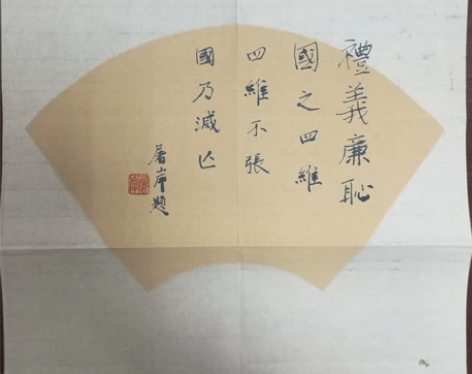 禮義廉恥
國之四維
四維不張
國乃滅亡
屠岸題